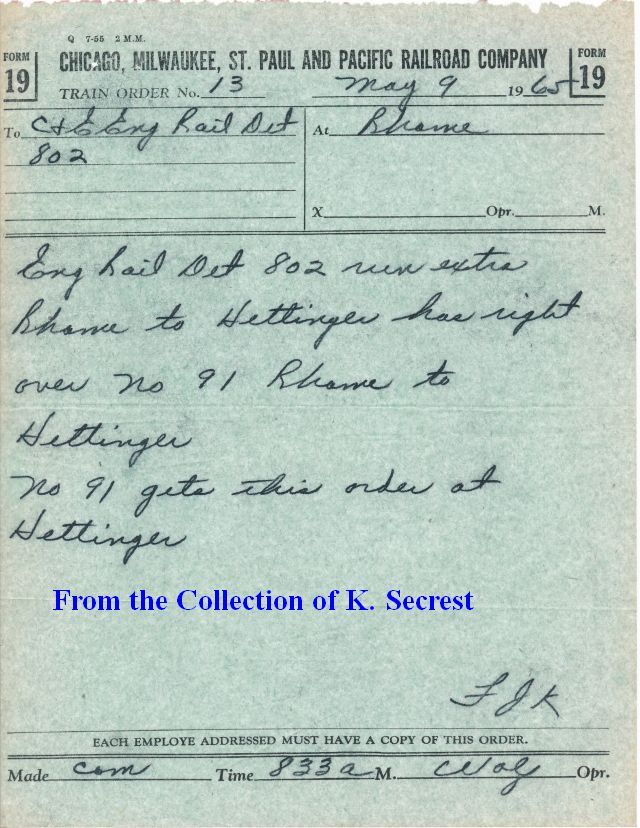 Q 7-55 2 M.M.
FORM 19
CHICAGO, MILWAUKEE, ST. PAUL AND PACIFIC RAILROAD COMPANY
FORM 19
TRAIN ORDER No. 13 May 9 1965
To C+E Eng Rail Det
802
At Rhame
X Opr. M.
Eng Rail Det 802 run extra
Rhame to Hettinger has right
over No 91 Rhame to
Hettinger
No 91 gets this order at
Hettinger
From the Collection of K. Secrest
FJK
EACH EMPLOYE ADDRESSED MUST HAVE A COPY OF THIS ORDER.
Made com Time 833a M. Opr.